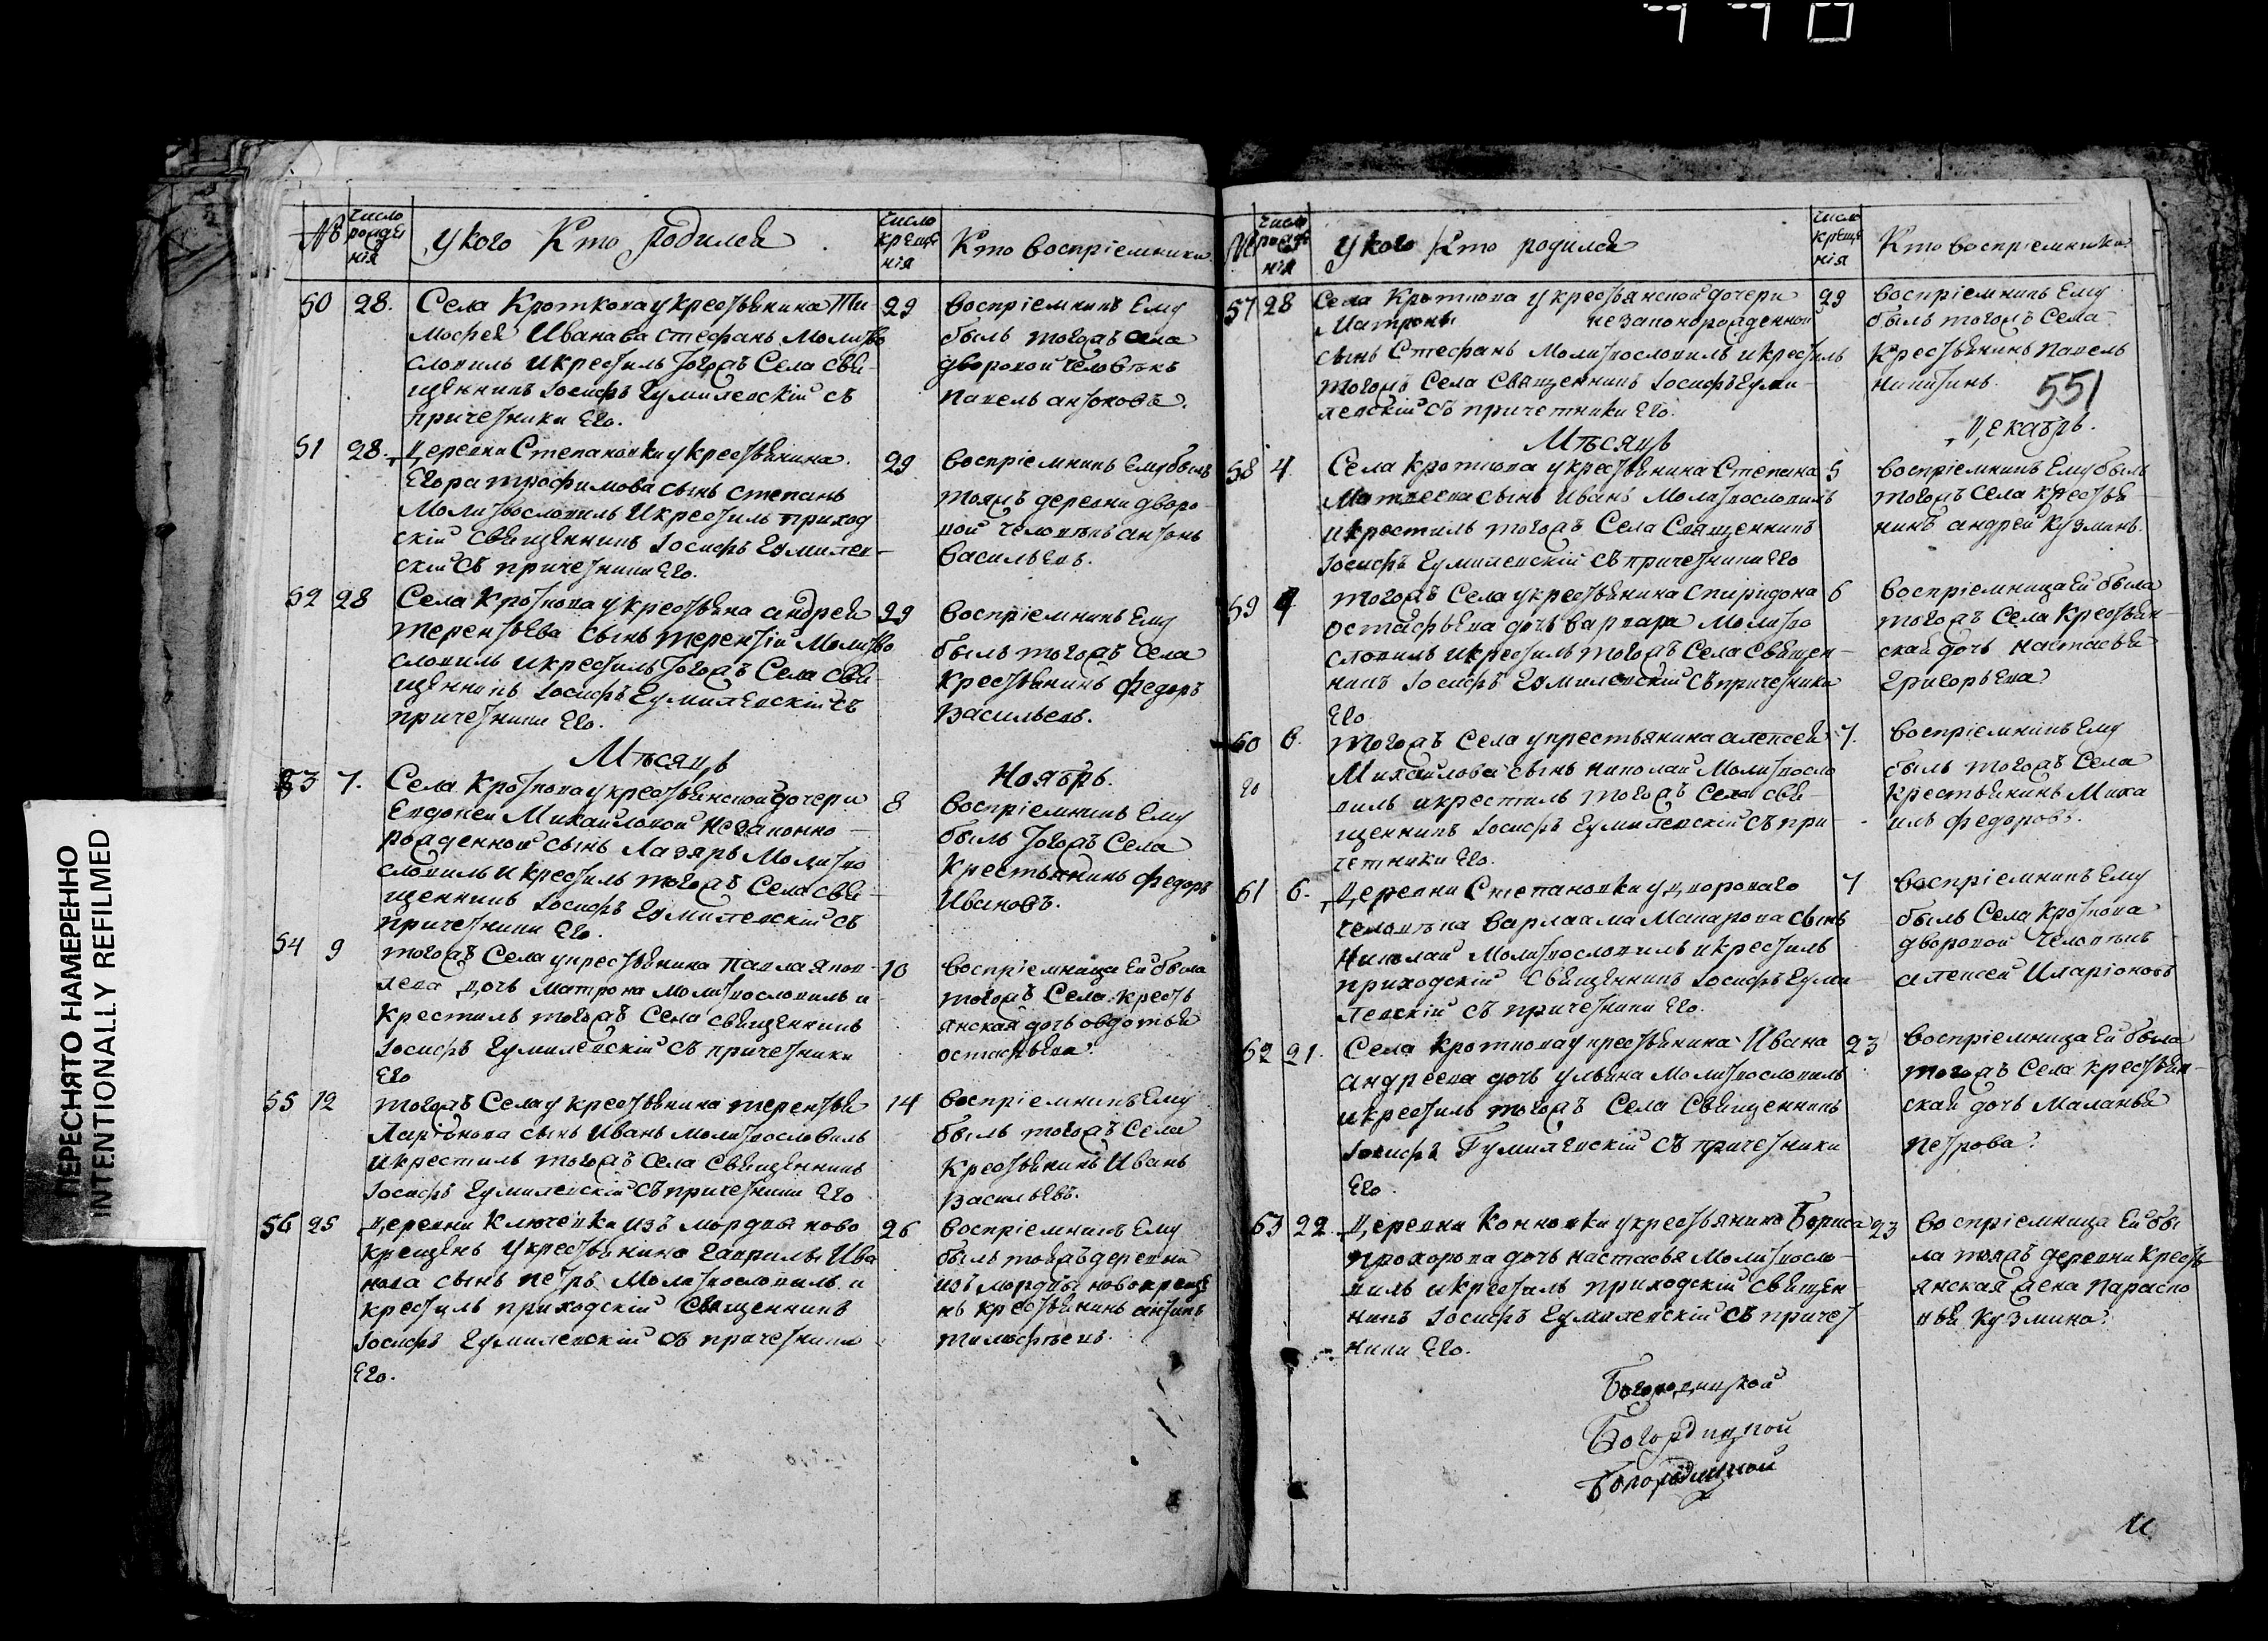 ПЕРЕСНЯТО НАМЕРЕННО
INTENTIONALLY REFILMED
№
число рожде нія
у кого Кто родился
число креще нія
Кто воспріемники
50 28. Села Кроткова у крестьянина Ти-
мофея Иванова сынъ Стефанъ Молитво
словилъ и крестилъ тогожъ Села свя-
щенникъ Іосифъ Гумилевскій съ
причетники Его.
29 воспріемникъ Ему
былъ тогожъ села
дворовой человѣкъ
Павелъ антоновъ.
51 28. Деревни Степановки у крестьянина
Егора трофимова сынъ степанъ
Молитвословилъ и крестилъ приход
скій священникъ Іосифъ Гумилев-
скій съ причетники Его.
29 воспріемникъ Ему былъ
тояжъ деревни дворо-
вой человѣкъ антонъ
васильевъ.
52 28 Села Кроткова у крестьяна андрея
терентьева сынъ терентій Молитво
словилъ и крестилъ тогожъ Села свя-
щенникъ Іосифъ Гумилевскій съ
причетники Его.
29 воспріемникъ Ему
былъ тогожъ села
крестьянинъ федоръ
васильевъ.
Мѣсяцъ Ноябрь.
53 7. Села Кроткова у крестьянской дочери
Евдокеи Михайловой незаконно-
рожденной сынъ Лазарь Молитво
словилъ и крестилъ тогожъ Села свя-
щенникъ Іосифъ Гумилевскій съ
причетники Его.
8 воспріемникъ Ему
былъ тогожъ Села
крестьянинъ федоръ
Ивановъ.
54 9 тогожъ Села у крестьянина Павла яков-
лева дочь матрона молитвословилъ и
крестилъ тогожъ Села священникъ
Іосифъ Гумилевскій съ причетники
Его
10 воспріемница Ей была
тогожъ Села кресть
янская дочь овдотья
остафьева.
55 12 тогожъ Села у крестьянина терентья
Ларіонова сынъ Иванъ молитвословилъ
и крестилъ тогожъ села священникъ
Іосифъ Гумилевскій съ причетники Его
14 воспріемникъ Ему
былъ тогожъ Села
крестьянинъ Иванъ
васильевъ.
56 25 Деревни Ключевки изъ мордвы ново
крещенъ у крестьянина гаврилы Ива
нова сынъ петръ Молитвословилъ и
крестилъ приходскій священникъ
Іосифъ Гумилевскій съ причетники
Его.
26 воспріемникъ Ему
былъ тояжъ деревни
изъ мордвы новокреще
нъ крестьянинъ антипъ
тимофѣевъ.
№
число рожде нія
у кого Кто родился
число креще нія
Кто воспріемники
57 28 Села Кроткова у крестьянской дочери
Матроны незаконорожденной
сынъ Стефанъ Молитвословилъ и крестилъ
тогожъ Села священникъ Іосифъ Гуми-
левскій съ причетники Его.
29 воспріемникъ Ему
былъ тогожъ Села
крестьянинъ павелъ
никитинъ.
551
Мѣсяцъ Декабрь.
58 4. Села Кроткова у крестьянина Степана
Матвеева сынъ иванъ Молитвословилъ
и крестилъ тогожъ Села Священникъ
Іосифъ Гумилевскій съ причетники Его
5 воспріемникъ Ему былъ
тогожъ Села крестья
нинъ андрей кузминъ.
59 4 тогожъ Села у крестьянина спиридона
остафьева дочь варвара Молитво
словилъ и крестилъ тогожъ Села священ-
никъ Іосифъ Гумилевскій съ причетники
Его
6 воспріемница Ей была
тогожъ Села крестьян-
ская дочь настасья
григорьева
60 6. тогожъ Села у крестьянина алексея
Михайлова сынъ николай Молитвосло
вилъ и крестилъ тогожъ Села свя-
щенникъ Іосифъ Гумилевскій съ при-
четники Его.
7. воспріемникъ Ему
былъ тогожъ Села
крестьянинъ Миха
илъ федоровъ.
61 6. Деревни Степановки у двороваго
человѣка варлаама Макарова сынъ
николай Молитвословилъ и крестилъ
приходскій священникъ Іосифъ Гуми
левскій съ причетники Его.
7 воспріемникъ Ему
былъ Села Кроткова
дворовой человѣкъ
алексей Иларіоновъ
62 21. Села Кроткова у крестьянина Ивана
андреева дочь ульяна Молитвословилъ
и крестилъ тогожъ Села Священникъ
Іосифъ Гумилевскій съ причетники
Его.
23 воспріемница Ей была
тогожъ Села крестьян-
ская дочь Маланья
петрова.
63 22 Деревни Конновки у крестьянина Бориса
прохорова дочь настасья Молитвосло-
вилъ и крестилъ приходскій священ-
никъ Іосифъ Гумилевскій съ причет
ники Его.
23 воспріемница Ей бы
ла тояжъ деревни кресть
янская жена параско
вья кузмина.
Богородицкой
Богородицкой
Богородицкой